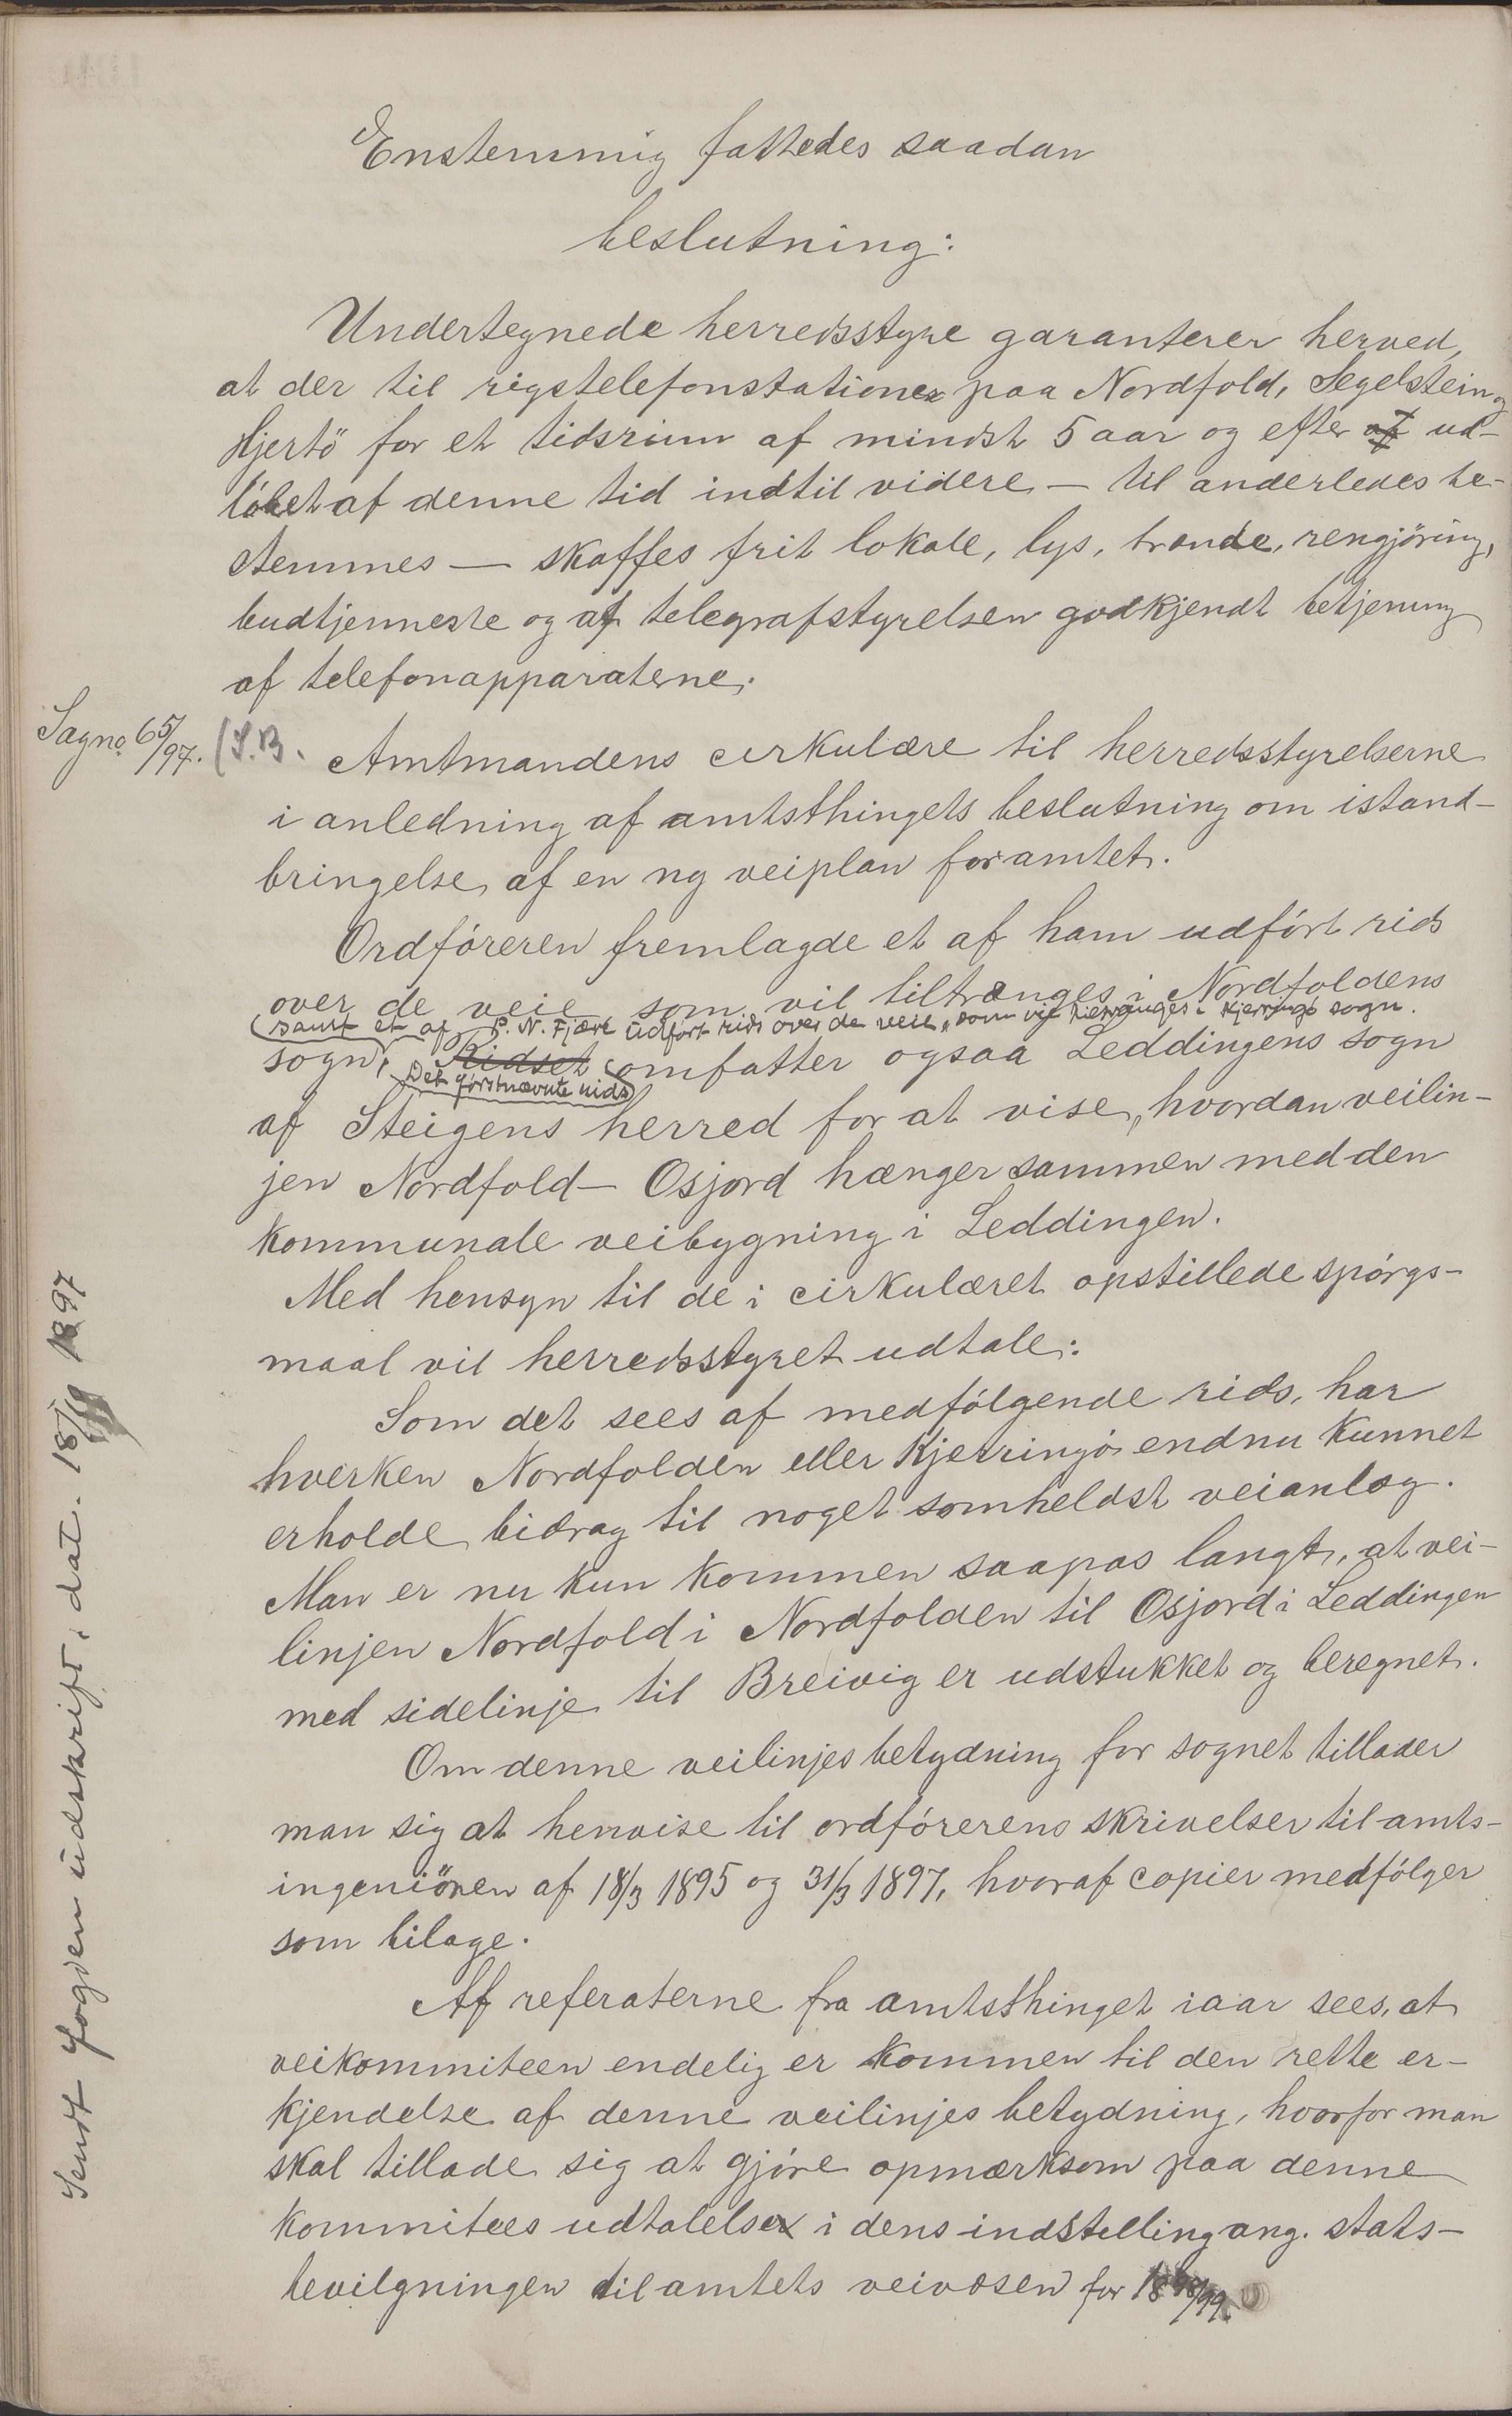 Enstemmig fattedes saadan
beslutning:
Undertegnede herredsstyre garanterer herved,
at der til rigstelefonstationer paa Nordfold, Segelstein og
Hjertö for et tidsrum af mindst 5 aar og efter af ud-
løbet af denne tid indtil videre — til anderledes be-
stemmes — skaffes frit lokale, lys, brænde, rengjöring,
budtjenneste og af telegrafstyrelsen godkjendt betjening
af telefonapparaterne.
Sagno 65/97. (S.B. Amtmandens cirkulære til herredsstyrelserne
i anledning af amtsthingets beslutning om istand-
bringelse af en ny veiplan for amtet.
Ordføreren fremlagde et af ham udført rids
over de veie som vil tiltrænges i Nordfoldens
(samt et af P. N. Fjære udført rids over de veie, som vil tiltrænges i Kjerringø sogn.
sogn. Ridset omfatter ogsaa Leddingens sogn
Det førstnævnte rids
af Steigens herred for at vise, hvordan veilin-
jen Nordfold — Osjord hænger sammen med den
kommunale veibygning i Leddingen.
Med hensyn til de i cirkulæret opstillede spørgs-
maal vil herredsstyret udtale:
Som det sees af medfølgende rids, har
hverken Nordfolden eller Kjerringø endnu kunnet
erholde bidrag til noget somheldst veianlæg.
Man er nu kun kommen saapas langt, at vei-
linjen Nordfold i Nordfolden til Osjord i Leddingen
med sidelinje til Breivig er udstukket og beregnet.
Om denne veilinjes betydning for sognet tillader
man sig at henvise til ordførerens skrivelser til amts-
ingeniören af 18/3 1895 og 31/3 1897, hvoraf copier medfølger
som bilage.
Af referaterne fra amtsthinget iaar sees, at
veikommiteen endelig er kommen til den rette er-
kjendelse af denne veilinjes betydning, hvorfor man
skal tillade sig at gjøre opmærksom paa denne
kommitees udtalelser i dens indstelling ang. stats-
bevilgningen til amtets veivæsen for 1898/99.
Sendt fogden udskrift, dat. 18/ 1897